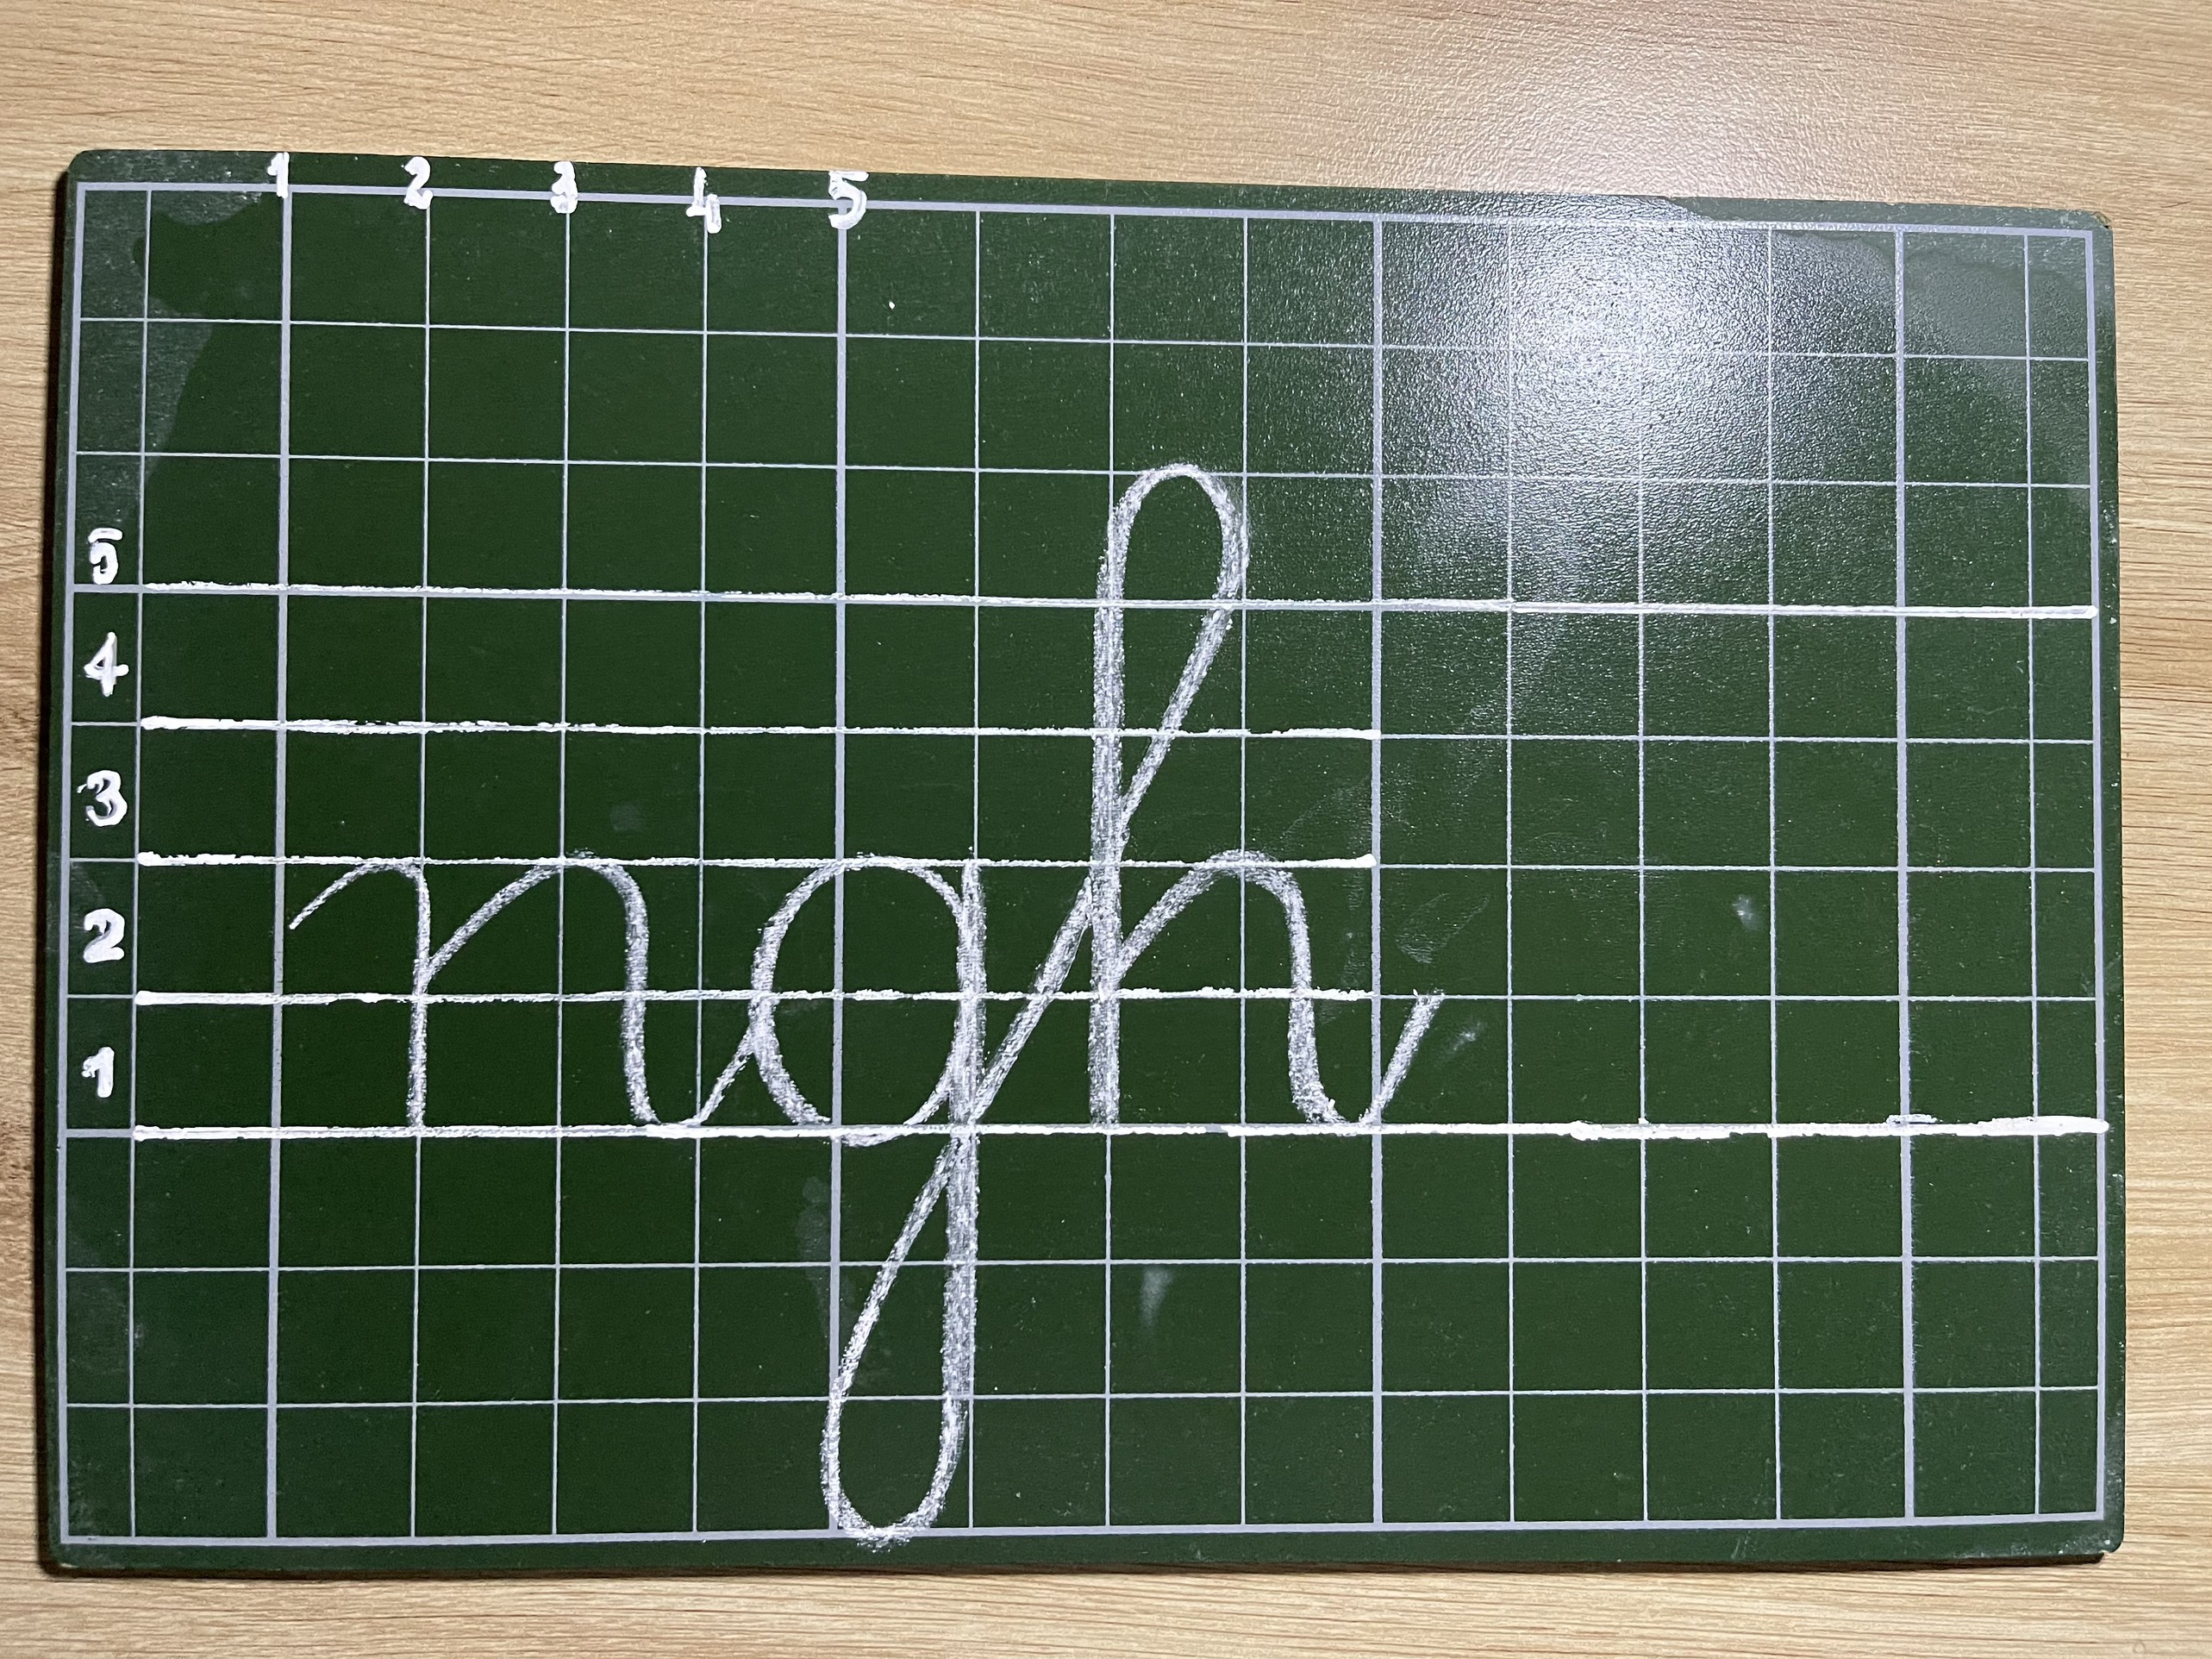 1 2 3 4 5
5
4
3
2
1
ngh